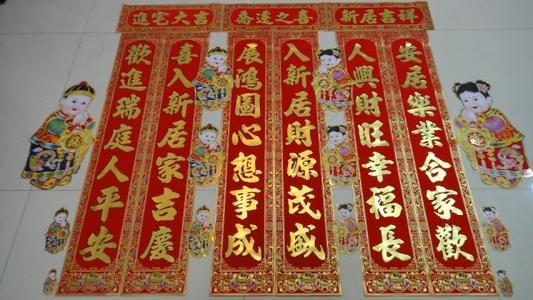 進宅大吉
喬遷之喜
新居吉祥
安居樂業合家歡
人興財旺幸福長
入新居財源茂盛
展鴻圖心想事成
喜入新居家吉慶
歡進瑞庭人平安